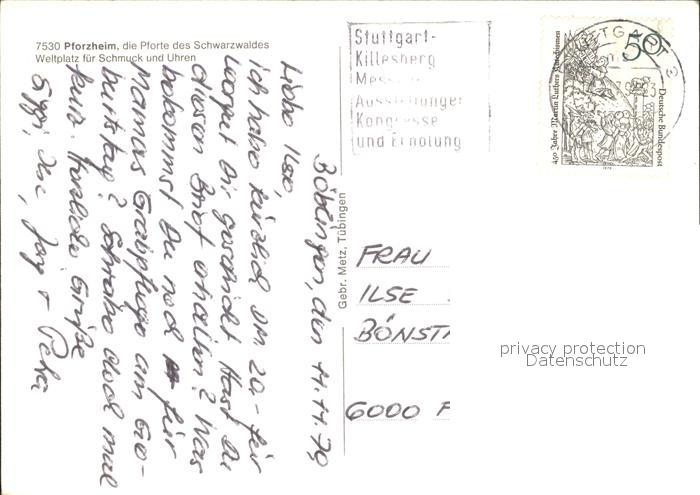 7530 Pforzheim, die Pforte des Schwarzwaldes
Weltplatz für Schmuck und Uhren
Böblingen, den 11.11.79
Liebe Ilse,
ich habe kürzlich DM 20.- für
Dir geschickt. Hast Du
diesen Brief erhalten? Was
bekommst Du noch für
Mamas Grabpflege am Ge-
burtstag? Schreibe doch mal
kurz. Herzliche Grüße
Jörg + Petra
Gebr. Metz, Tübingen
Stuttgart-
Killesberg
Messen
Ausstellungen
Kongresse
und Erholung
50
450 Jahre Martin Luthers Katechismen
Deutsche Bundespost
1979
FRAU
ILSE
BÖNST
6000 F
privacy protection
Datenschutz